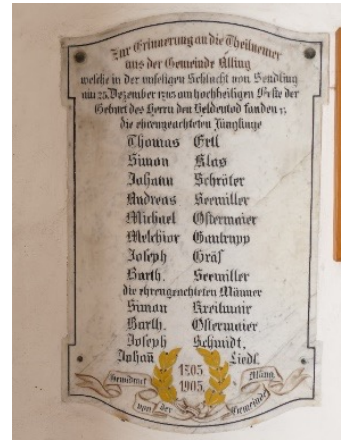 Zur Erinnerung an die Theilnemer
aus der Gemeinde Alling
welche in der unseligen Schlacht von Sendling
am 25. Dezember 1705 am hochheiligen Feste der
Geburt des Herrn den Heldentod fanden
die ehrengeachteten Jünglinge
Thomas Ertl
Simon Klas
Johann Schröter
Andreas Seemiller
Michael Ostermaier
Melchior Gantrapp
Joseph Gräf
Barth. Seemiller
die ehrengeachteten Männer
Simon Kreitmair
Barth. Ostermaier
Joseph Schmidt.
Johañ Liedl.
1705
1905
Gewidmet von der Gemeinde Alling